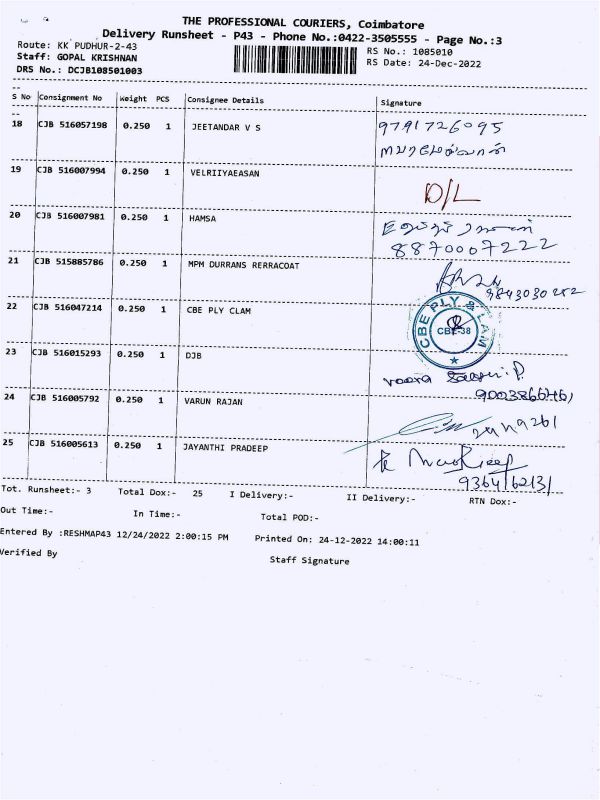 THE PROFESSIONAL COURIERS, Coimbatore
Delivery Runsheet - P43 - Phone No.:0422-3505555 - Page No.:3
Route: KK PUDHUR-2-43
RS No.: 1085010
Staff: GOPAL KRISHNAN
RS Date: 24-Dec-2022
DRS No.: DCJB108501003
S No Consignment No Weight PCS Consignee Details Signature
18 CJB 516057198 0.250 1 JEETANDAR V S 9791726095
19 CJB 516007994 0.250 1 VELRIIYAEASAN D/L
20 CJB 516007981 0.250 1 HAMSA
8870007222
21 CJB 515885786 0.250 1 MPM DURRANS RERRACOAT
9843030252
22 CJB 516047214 0.250 1 CBE PLY CLAM CBE PLY & LAM CBE-38
23 CJB 516015293 0.250 1 DJB
9003866461
24 CJB 516005792 0.250 1 VARUN RAJAN
25 CJB 516005613 0.250 1 JAYANTHI PRADEEP
9364162131
Tot. Runsheet:- 3 Total Dox:- 25 I Delivery:- II Delivery:- RTN Dox:-
Out Time:- In Time:- Total POD:-
Entered By :RESHMAP43 12/24/2022 2:00:15 PM Printed On: 24-12-2022 14:00:11
Verified By Staff Signature